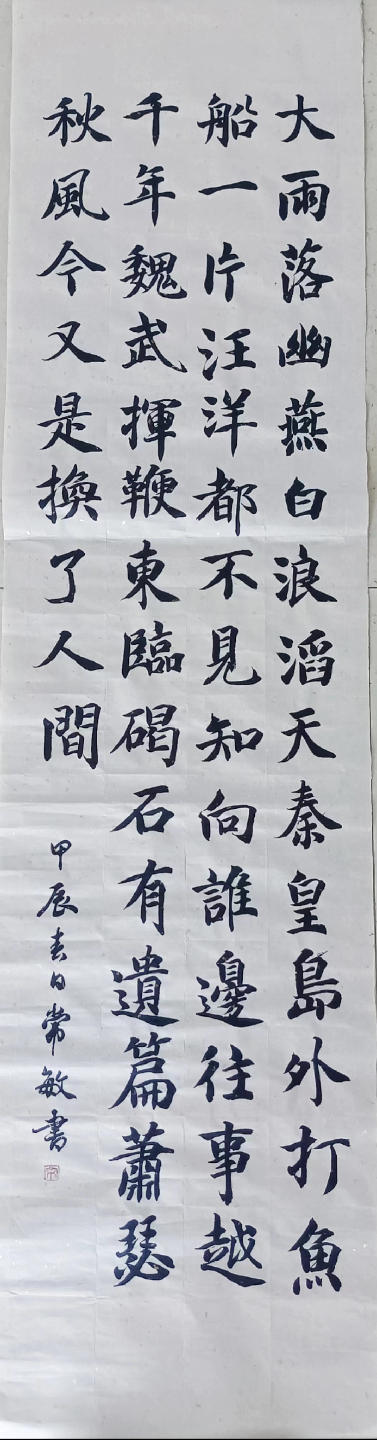 大雨落幽燕白浪滔天秦皇島外打魚
船一片汪洋都不見知向誰邊往事越
千年魏武揮鞭東臨碣石有遺篇蕭瑟
秋風今又是換了人間
甲辰春日常敏書